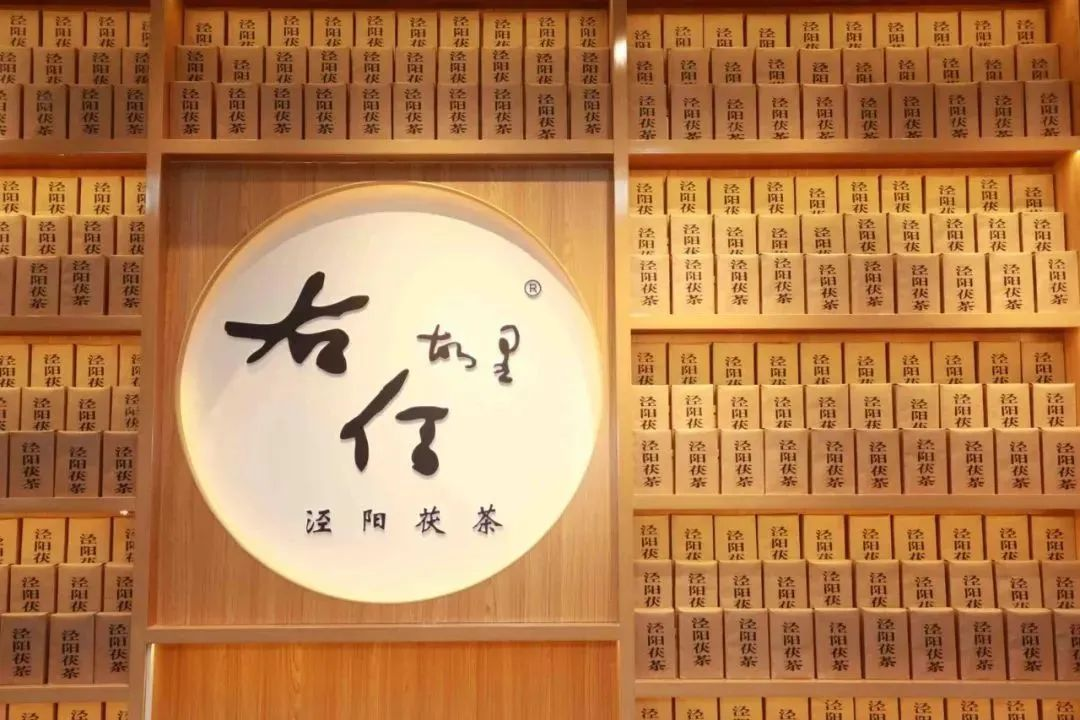 右任故里®
泾阳茯茶
泾阳茯茶